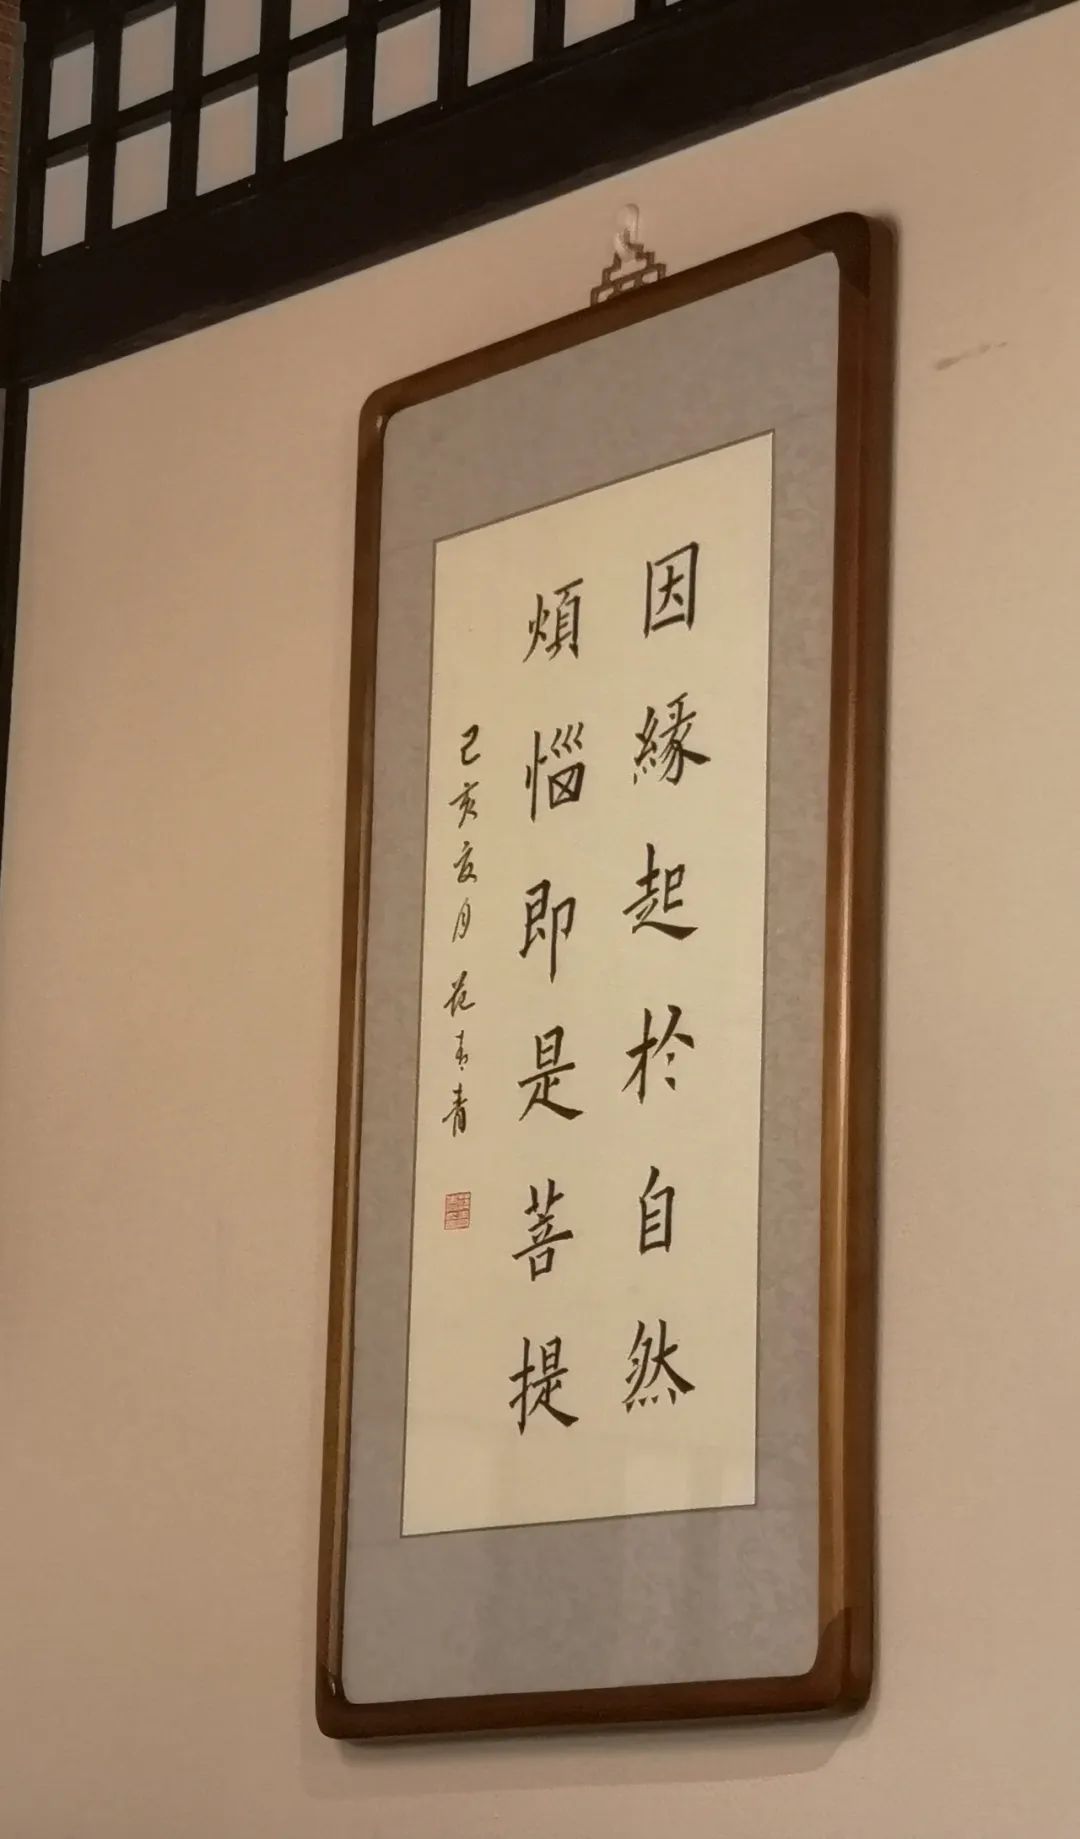 因緣起於自然
煩惱即是菩提
己亥夏月范青青